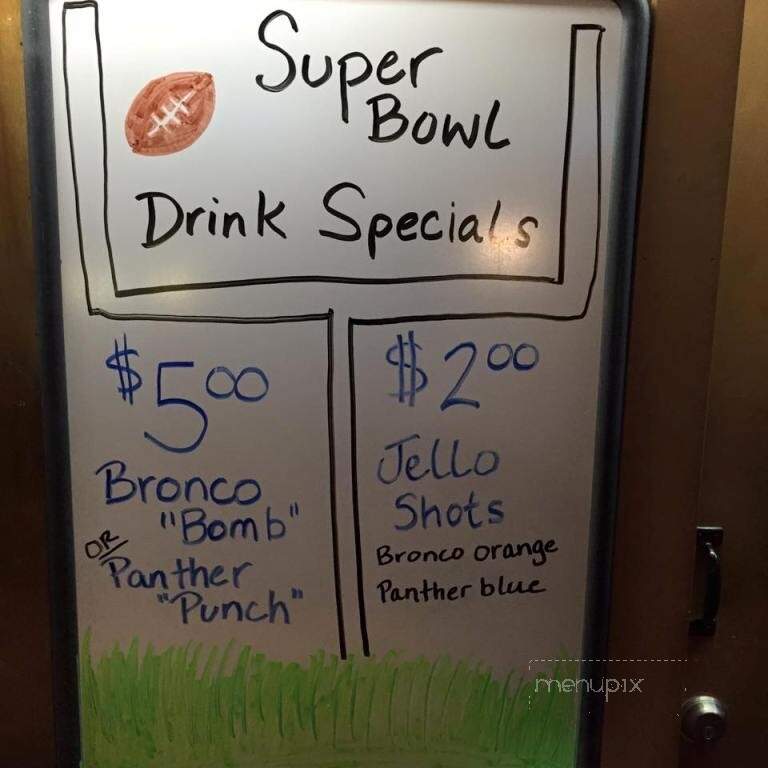 Super
Bowl
Drink Specials
$5.00
Bronco
"Bomb"
OR
Panther
"Punch"
$2.00
Jello
Shots
Bronco orange
Panther blue
menupix